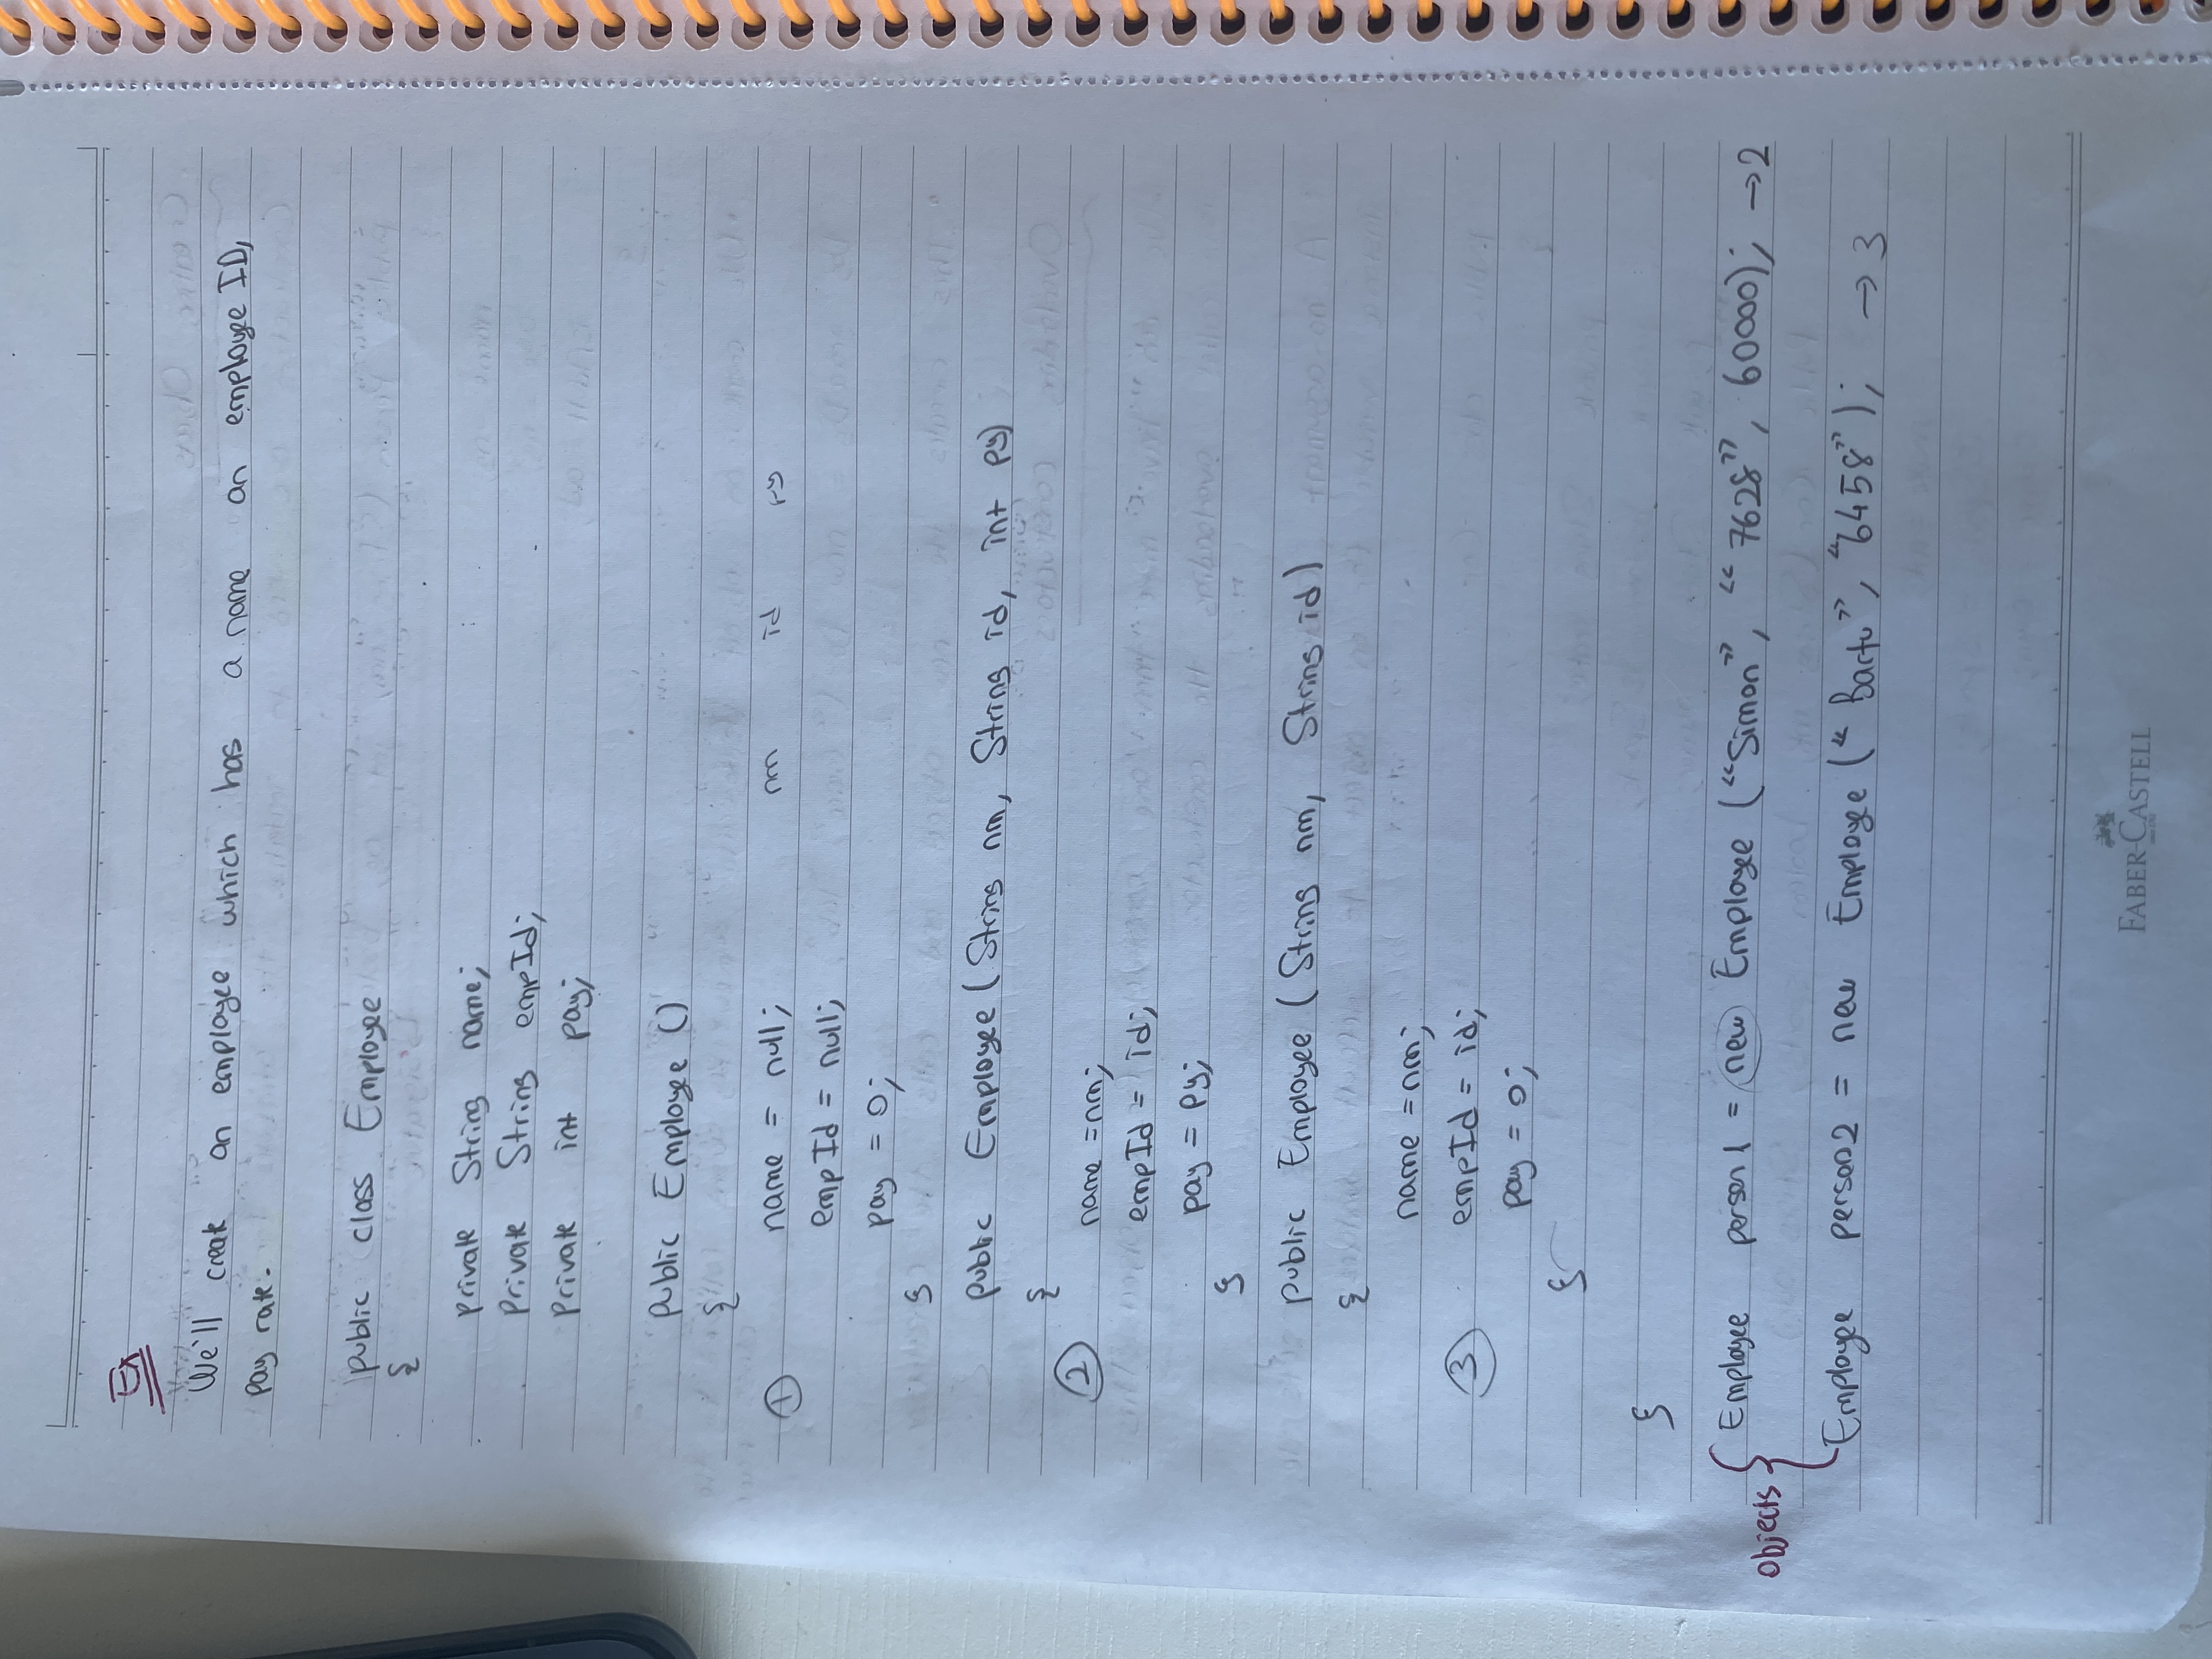 Ex
We'll create an employee which has a name an employee ID,
pay rate.
public class Employee
{
private String name;
private String empId;
private int pay;
public Employee ()
{
① name = null; nm id py
empId = null;
pay = 0;
}
public Employee (String nm, String id, int py)
{
② name = nm;
empId = id;
pay = py;
}
public Employee (String nm, String id)
{
name = nm;
③ empId = id;
pay = 0;
}
}
Objects { Employee person1 = new Employee ("Simon", "7628", 60000); →2
Employee person2 = new Employee ("Bartu", "6458"); →3
FABER-CASTELL